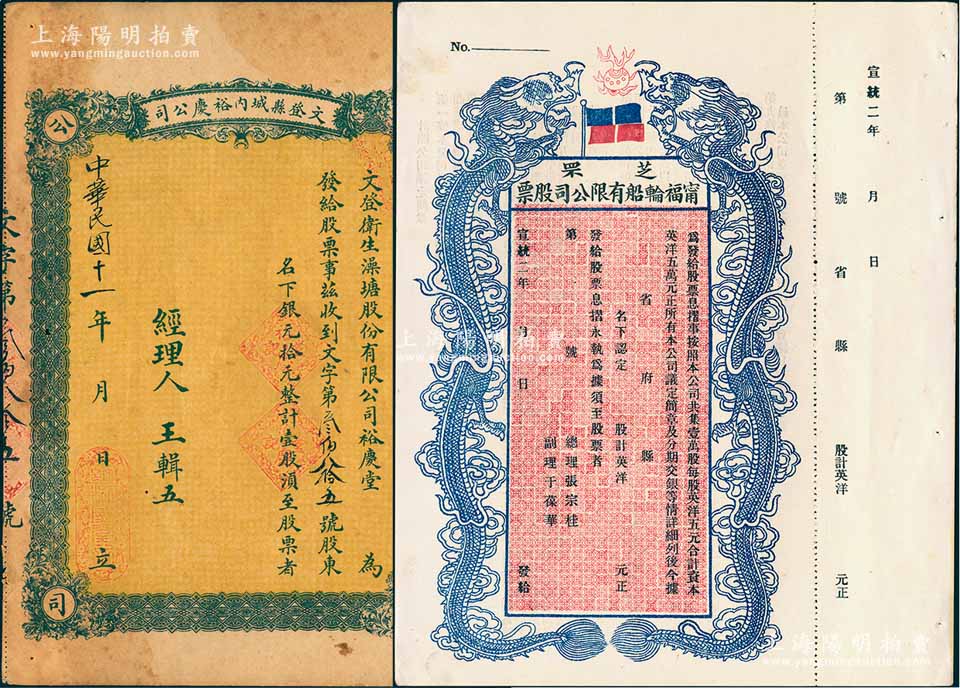 上海陽明拍賣
www.yangmingauction.com
文登縣城内裕慶公司
公
司
文登衛生澡塘股份有限公司裕慶堂 為
發給股票事茲收到文字第叁佰八拾五號股東
名下銀元拾元整計壹股須至股票者
經理人 王輯五
中華民國十一年 月 日 立
文字第叁佰八拾五號
No.
芝罘
甯福輪船有限公司股票
為發給股票息摺事按照本公司共集壹萬股每股英洋五元合計資本
英洋五萬元正所有本公司議定簡章及分期交銀等情詳細列後今據
省 府 縣
名下認定 股計英洋 元正
發給股票息摺永執為據須至股票者
第 號
總理張宗桂
副理于葆華
宣統二年 月 日 發給
宣統二年 月 日
第 號 省 縣 股計英洋 元正
上海陽明拍賣
www.yangmingauction.com